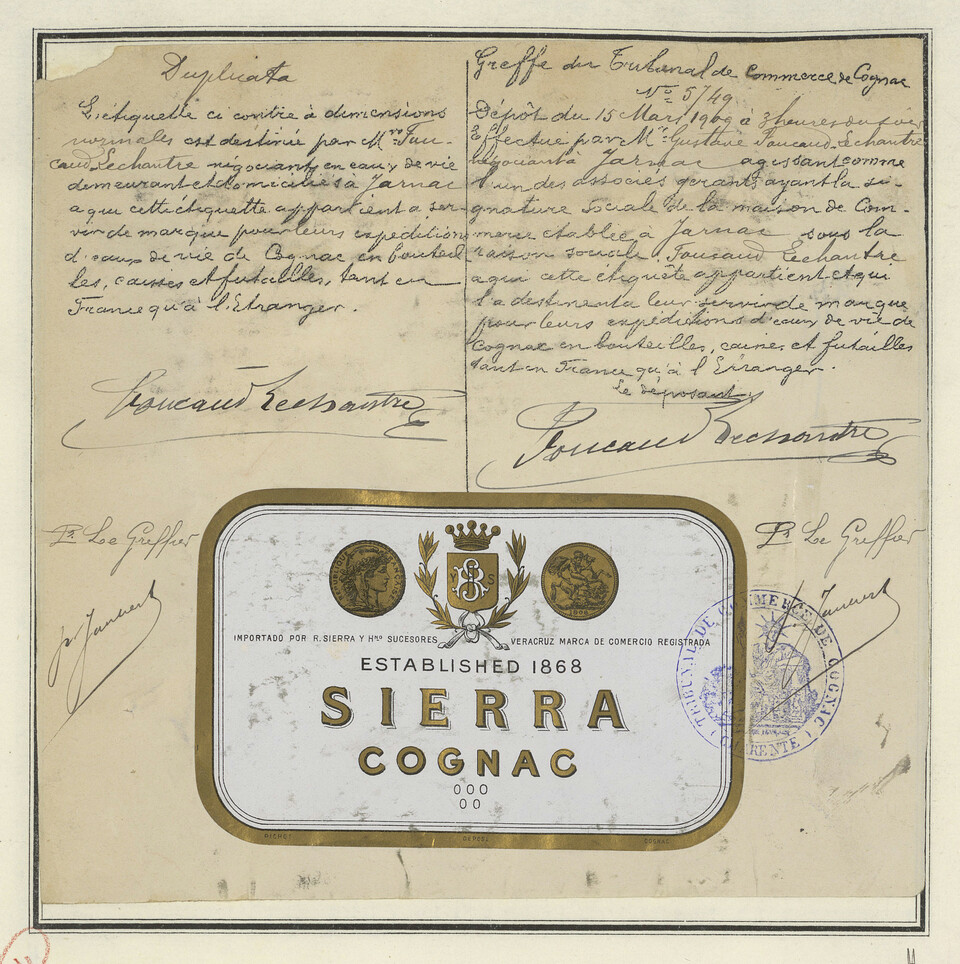 Duplicata
L'étiquette ci contre à dimensions
normales est destinée par Mrs Fou-
caud Lechantre négociants en eaux de vie
demeurant et domiciliés à Jarnac
a qui cette étiquette appartient a ser-
vir de marque pour leurs expéditions
d'eaux de vie de Cognac en bouteil
les, caisses et futailles, tant en
France qu'à l'Etranger.
Foucaud Lechantre
Pr. Le Greffier
Greffe du Tribunal de Commerce de Cognac
No 5749
Dépôt du 15 Mars 1909 à 3 heures du soir
Effectué par Mr. Gustave Foucaud Lechantre
négociant à Jarnac agissant comme
l'un des associés gérants ayant la si-
gnature sociale de la maison de Com-
merce établie à Jarnac sous la
raison sociale Foucaud Lechantre
a qui cette étiquète appartient et qui
l'a destinent a leur servir de marque
pour leurs expéditions d'eaux de vie de
Cognac en bouteilles, caisses et futailles
tant en France qu'à l'Etranger.
Le déposant
Foucaud Lechantre
Pr. Le Greffier
REPUBLIQUE FRANÇAISE
V S
1908
IMPORTADO POR R. SIERRA Y HNO SUCESORES VERACRUZ MARCA DE COMERCIO REGISTRADA
ESTABLISHED 1868
SIERRA
COGNAC
OOO
OO
DÉPOSÉ
COGNAC
TRIBUNAL DE COMMERCE DE COGNAC
(CHARENTE)